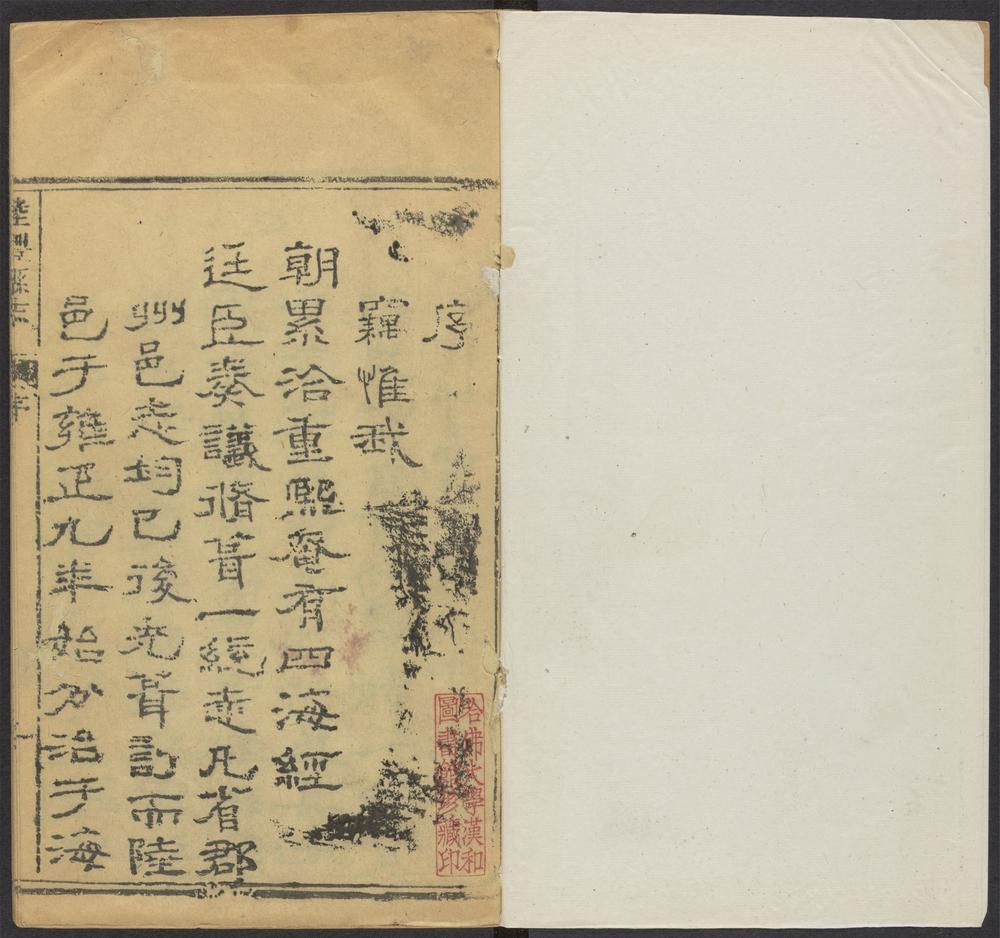 序
竊惟我
朝累洽重熙奄有四海經
廷臣奏議脩葺一統志凡省郡
州邑志均已後先葺訂而陸
邑于雍正九年始分治于海
陸豐縣志
序
哈佛大學漢和
圖書館珍藏印